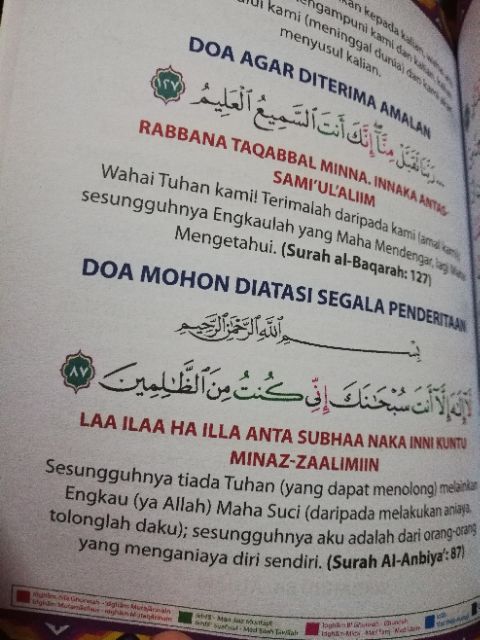 kepada kalian,
mengampuni kami dan kalian,
kami (meninggal dunia) dan kami akan
menyusul kalian.
DOA AGAR DITERIMA AMALAN
...رَبَّنَا تَقَبَّلْ مِنَّا ۖ إِنَّكَ أَنتَ السَّمِيعُ الْعَلِيمُ ١٢٧
RABBANA TAQABBAL MINNA. INNAKA ANTAS-
SAMI'UL'ALIIM
Wahai Tuhan kami! Terimalah daripada kami (amal kami)
sesungguhnya Engkaulah yang Maha Mendengar, lagi Maha
Mengetahui. (Surah al-Baqarah: 127)
DOA MOHON DIATASI SEGALA PENDERITAAN
بِسْمِ اللَّهِ الرَّحْمَٰنِ الرَّحِيمِ
لَّا إِلَٰهَ إِلَّا أَنتَ سُبْحَانَكَ إِنِّي كُنتُ مِنَ الظَّالِمِينَ ٨٧
LAA ILAA HA ILLA ANTA SUBHAA NAKA INNI KUNTU
MINAZ-ZAALIMIIN
Sesungguhnya tiada Tuhan (yang dapat menolong) melainkan
Engkau (ya Allah) Maha Suci (daripada melakukan aniaya,
tolonglah daku); sesungguhnya aku adalah dari orang-orang
yang menganiaya diri sendiri. (Surah Al-Anbiya': 87)